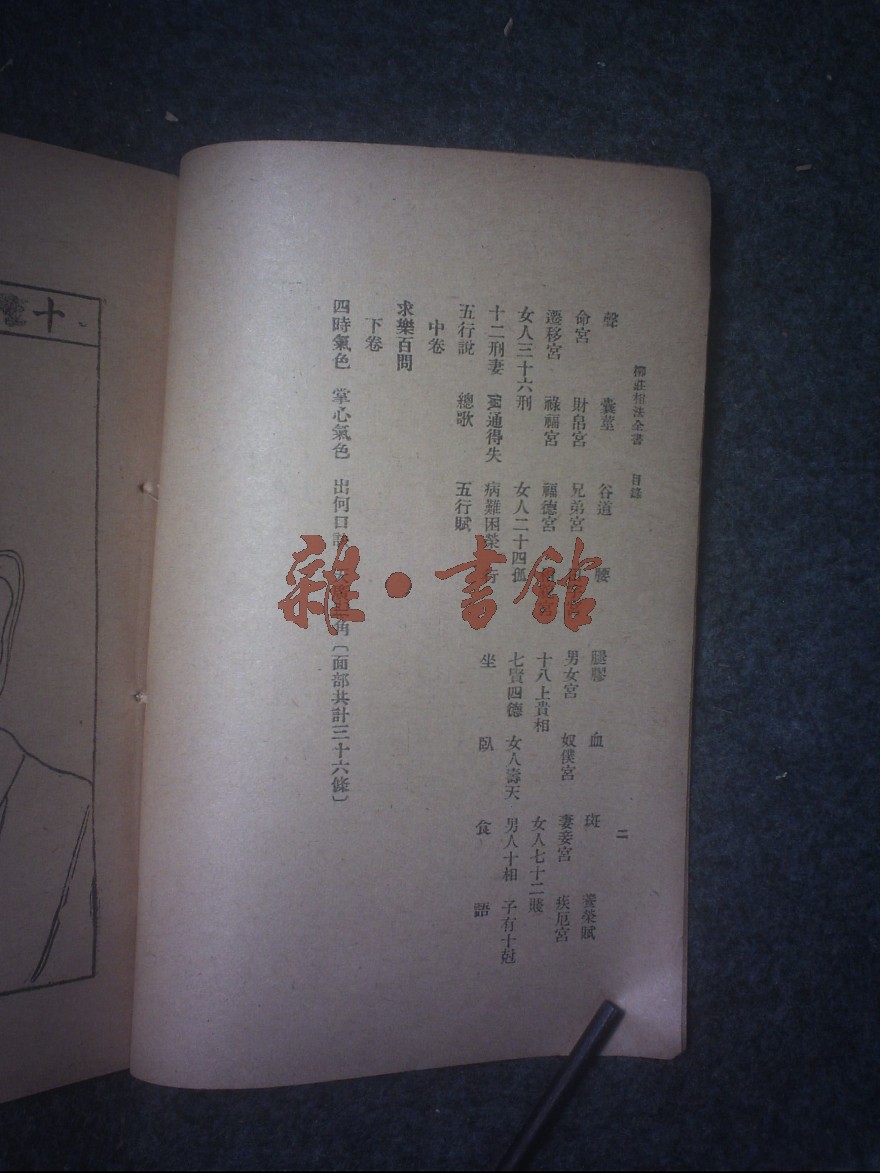 柳莊相法全書 目錄 二
聲 囊莖 谷道 腰 腿膠 血 斑 養榮賦
命宮 財帛宮 兄弟宮 男女宮 奴僕宮 妻妾宮 疾厄宮
遷移宮 祿福宮 福德宮 十八上貴相 女人七十二賤
女人三十六刑 女人二十四孤 七賢四德 女人壽夭 男人十相 子有十尅
十二刑妻 窮通得失 病難困榮 行 坐 臥 食 語
五行說 總歌 五行賦
中卷
求樂百問
下卷
四時氣色 掌心氣色 出何口 角〔面部共計三十六條〕
雜·書館
十